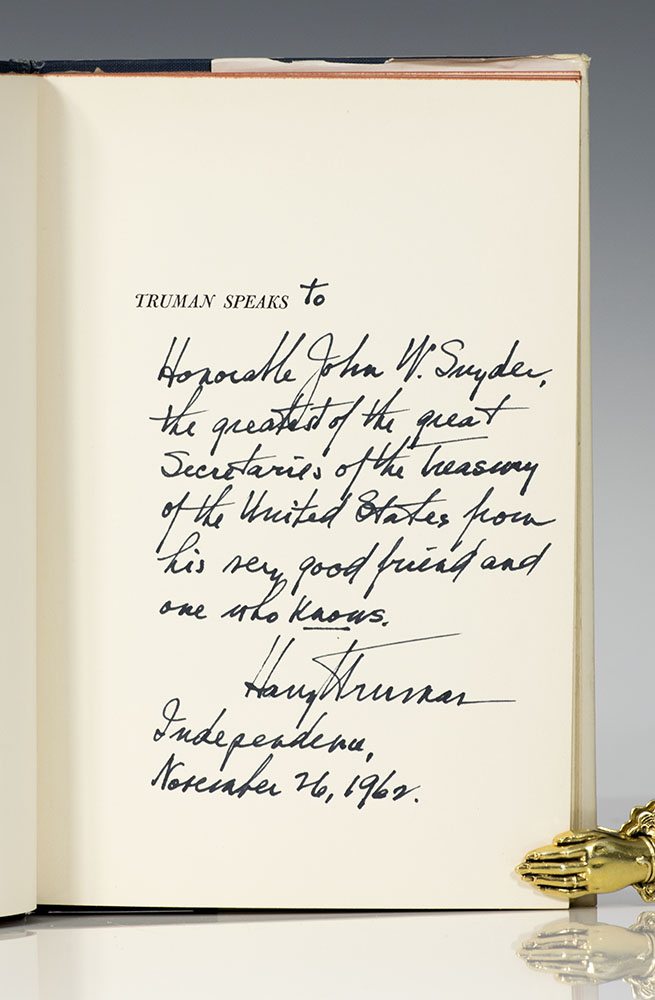 TRUMAN SPEAKS to
Honorable John W. Snyder,
the greatest of the great
Secretaries of the Treasury
of the United States from
his very good friend and
one who knows.
Harry Truman
Independence,
November 26, 1962.